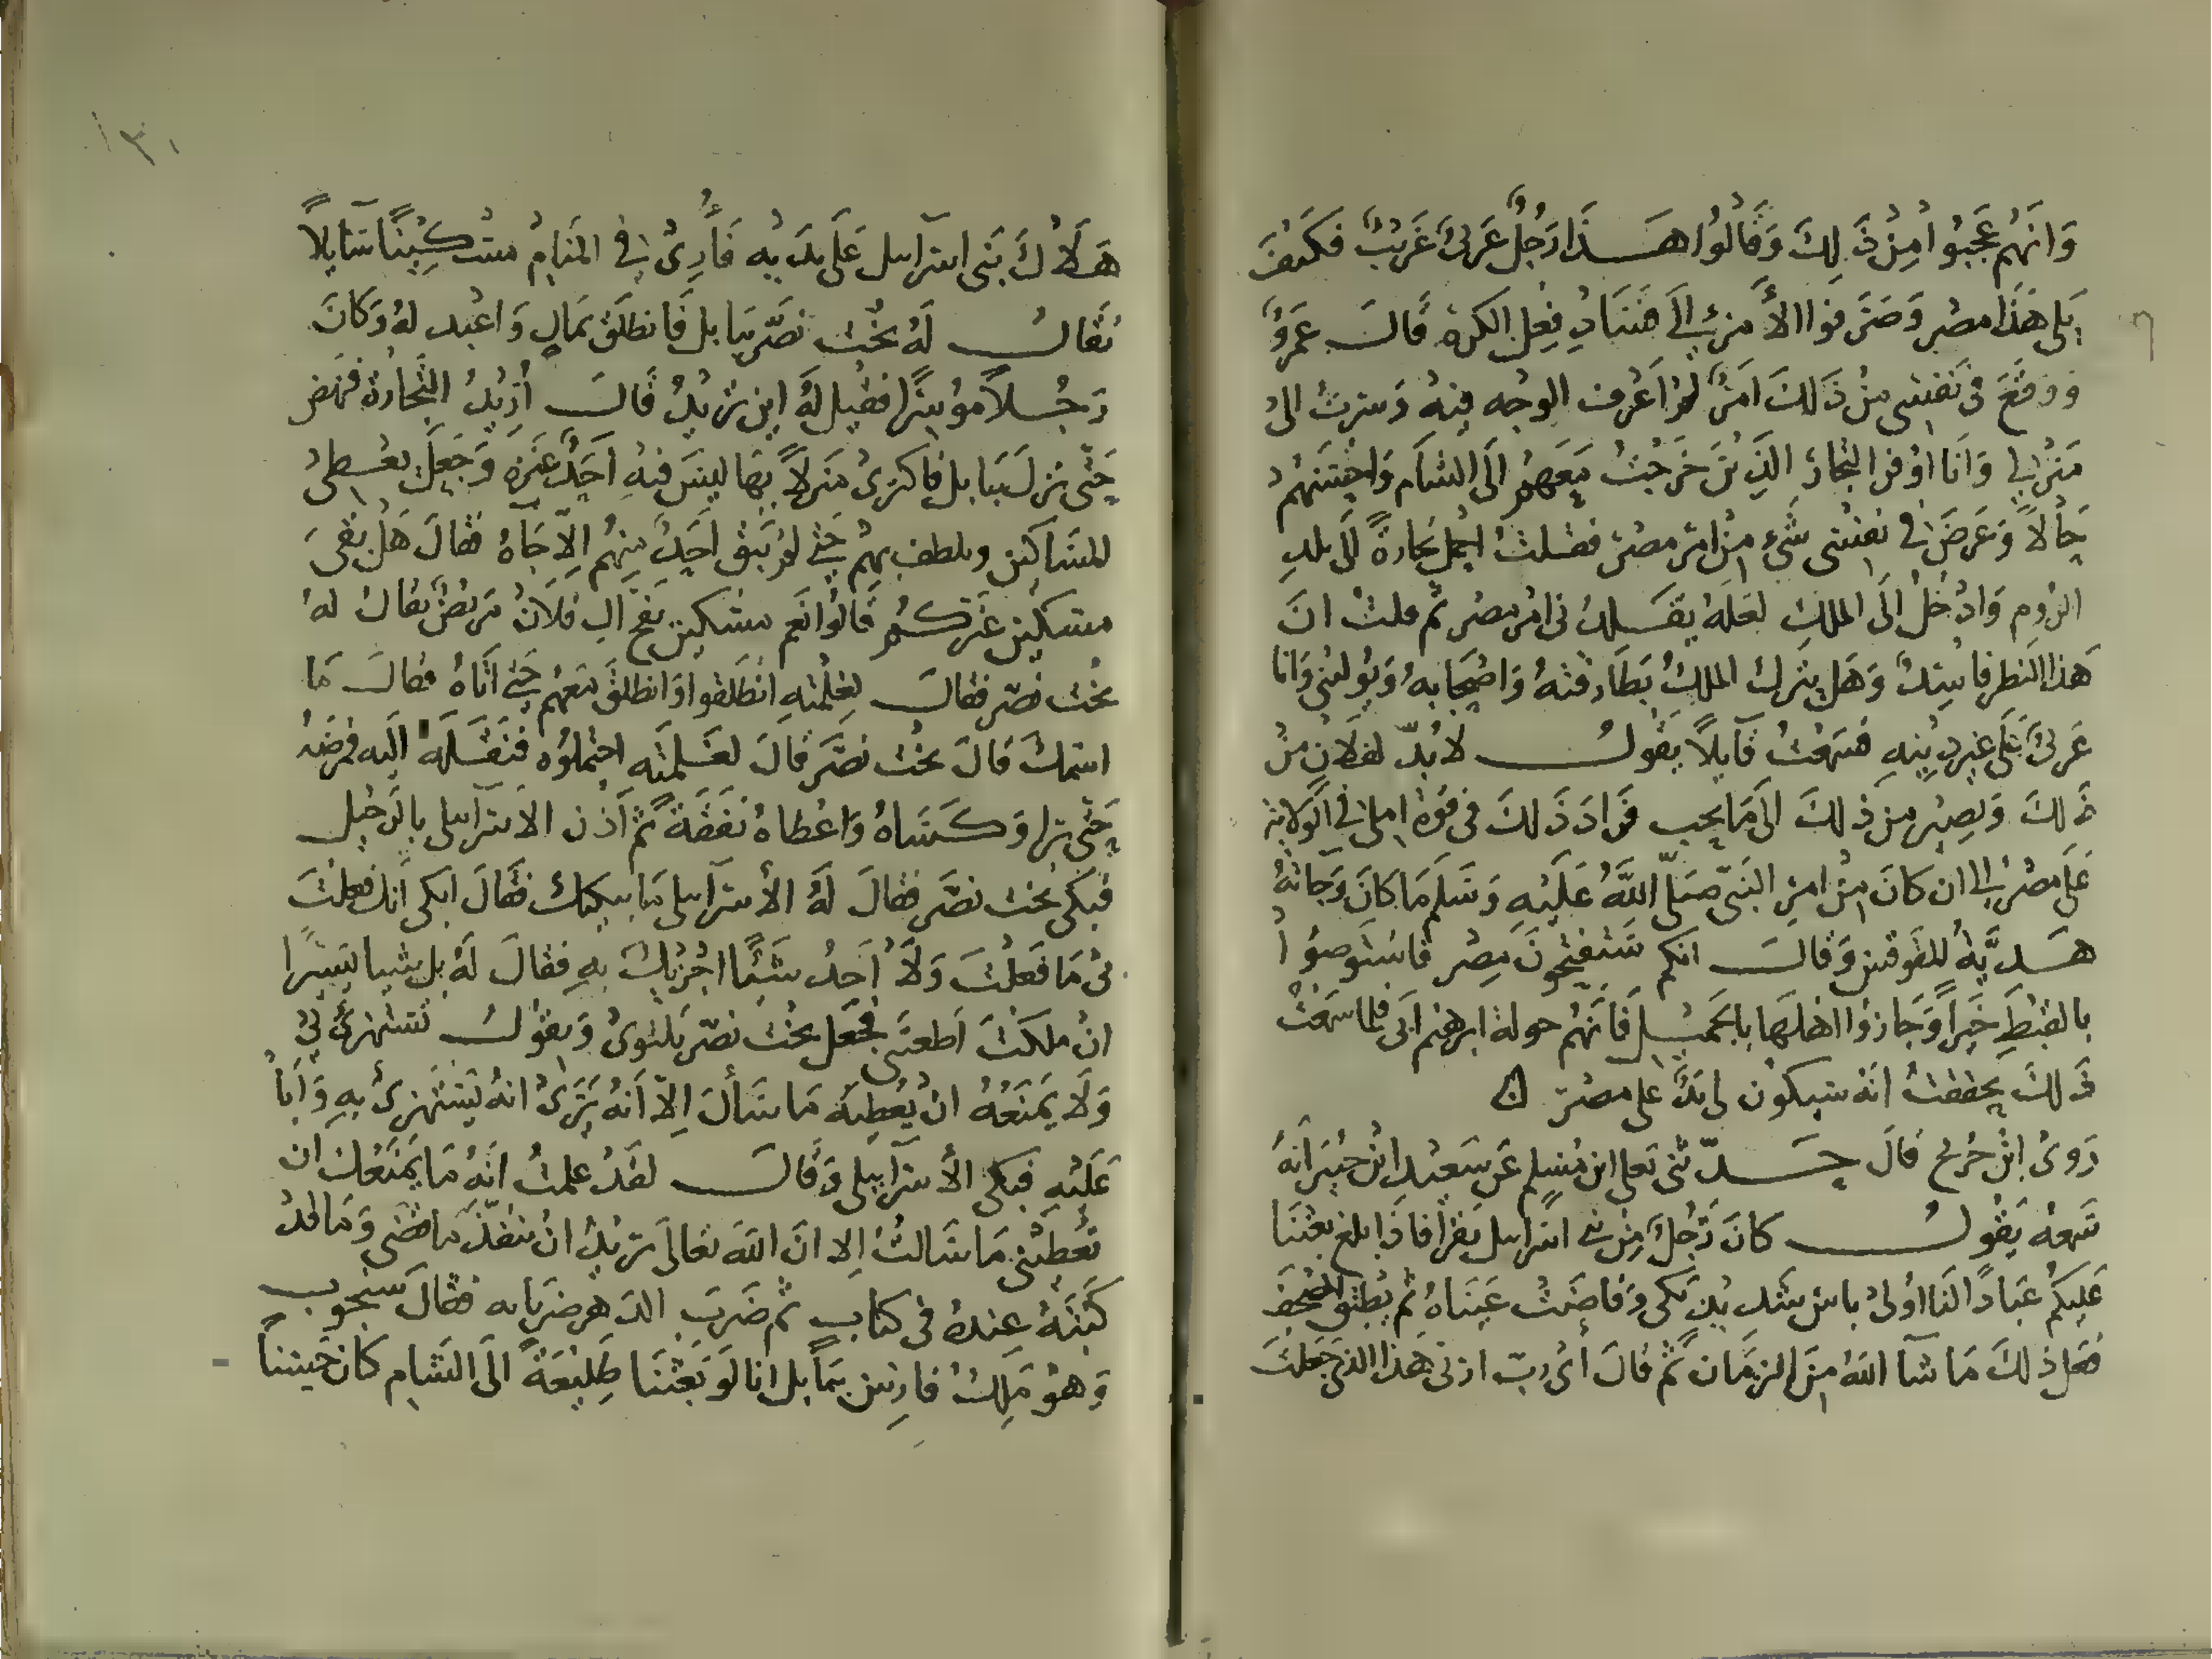 وَانَهُم عَجِبُوا مِنْ ذَلِكَ وَقَالُوا هَذَا رَجُلٌ عَرَبىٌ غَريْبٌ فكَيْفَ
يَلى هَذَا مصْر وَصَرَفوا الأمْرَ الَى فَسَادِ فِعِل الكرة قالَ عَمرٌو
ووقَعَ فى نَفْسى مِنْ ذَلكَ امَرٌ لمْ اَعْرف الوجْه فيْهُ وَسرتُ الىْ
مَنْزلى وَانَا اوفر التجارَ الذِيْنَ خَرجْتُ مَعَهُم الَى الشام وَاحْسَنهُمْ
حَالاً وَعَرَضَ فى نفسْى شَىء مِنْ امْرِ مصْرَ فقلتُ احْمل تجارةً الَى بلدِ
الرُوم وَادْخُلُ الَى الملِكِ لعَلهُ يقَلدُنى امْر مصْر ثم قلتُ انَ
هَذا النَظر فَاسِدٌ وَهَل يترك الملكُ بَطَارقتهُ وَاصْحَابهُ وَيُولينى وَانا
عَربىٌ عَلَى غيْر ديْنهِ فسَمعْتُ قآيلاً يقُولُ لابُدّ لفلانٍ مِنْ
ذَلكَ وَيصِيْر مِنْ ذلكَ الَى مَا يحب فَزادَ ذَلكَ فى قوَة املى فى الولاية
عَلَى مصْرَ الى ان كانَ مِنْ امرِ النَبّى صَلّى اللهُ عَلَيْهِ وَسَلم مَا كانَ وَجاتهُ
هَديَّةُ المُقوقس وَقالَ انكم سَتَفتَحُونَ مِصْر فاسْتوصُوْا
بالقبْطِ خَيْراً وَجَازوُا اهلَهَا بالجَميْل فَانَهُم حولة ابرهيْم ابى فلما سَمعْتُ
ذَلكَ تحققتُ انَهُ سَيكُون لى يَدٌ على مصْرَ ۵
رَوىْ ابْن جُريج قالَ حَدّثنى يَعلى ابن مُسْلم عَن سَعيْد ابْن جُبَيْر انهُ
سَمعهُ يَقُولُ كانَ رَجُلٌ مِنْ بَنى اسْرايل يَقرأ فاذَا بلغ بَعثْنَا
عَلَيكُم عبَادًا لنَا اوُلىْ باسٍ شَديْدٍ بَكى وَفاضَتْ عَيْنَاهُ ثُم يُطبق المُصْحَف
فعَل ذلكَ مَا شَآ اللهُ مِنَ الزمَان ثُمَ قَالَ أىْ ربّ ارنى هَذا الذى جَعلتَ
هَلاَكَ بَنى اسرآيل عَلى يَديْه فَأُرِىَ فى المَنامِ مسْكِيْنًا ببَابلَ
يُقالُ لَهُ بُخْت نَصَّر بَبا بل فَانطلَق بمَالٍ وَاعْبد لهُ وَكانَ
رَجُلاً موُسرًا فقيْل لهُ ايْن تريْدُ قَالَ اُرِيدُ التّجَارَة فنهَض
حَتّى نزلَ بَبا بل فاكترىْ مَنزلاً بهَا ليسَ فيْهِ احَدٌ غيْرَه وَجَعَلَ يعْطىْ
المسَاكين ويلطف بهِمْ حَتى لمْ يَبق احَدٌ مِنهُم الاّ جَآهُ فقَالَ هَلْ بَقىَ
مسكيْنٌ غيْركُم قَالُوا نَعَم مسْكين بفج ال فلاَنْ مَريْضٌ يقالُ لهُ
بخت نصّر فقالَ لِغِلْمَتِهِ انطلقوُا وَانطَلق مَعهُم حَتى اتَاهُ فقالَ مَا
اسمُكَ قالَ بختْ نصّرَ قالَ لغلمَتِه احْتملوُه فنَقلَهُ الَيه فمَرضَهُ
حَتّى برا وَكسَاهُ وَاعْطاهُ نفَقَةً ثمَ اَذن الاسرآيلى بالرَحيْل
فبَكى بُخت نصّر فقالَ لَهُ الأسرآيلى مَا يبكيْك فقَالَ ابكى أنك فعلتَ
بىْ مَا فعَلتَ وَلاَ اَجدُ شَيْئًا اجْزيْكَ بهِ فقالَ لَهُ بل شيْيا يسيْرًا
انْ ملكتَ اَطعتَنى فجَعَل بخْت نصّر يَلتوىْ وَيقوُلُ تَستهزئُ بىْ
وَلاَ يمَنعُهُ انْ يُعْطيَه مَا سَألَ الاّ اَنهُ يَرَىْ انهُ يَسْتهزئ بهِ وَابَاْ
عَلَيْهِ فبَكى الأسرآيلى وَقالَ لقَدْ علمتُ انَهُ مَا يَمنَعُك ان
تُعطيَنى مَا سَالتُ الا انَ اللهَ تعَالَى يريْدُ انْ ينفذَ مَا قضَى وَمَا قدْ
كتَبَهُ عِندهُ فى كتاب ثم ضَربَ الدَهر ضَربَاته فقالَ سَيحُوب
وَهوْ مَلكُ فارسَ ببَابل انا لَو بَعثْنَا طَليْعَةً الَى الشَامِ كان حَسَنًا